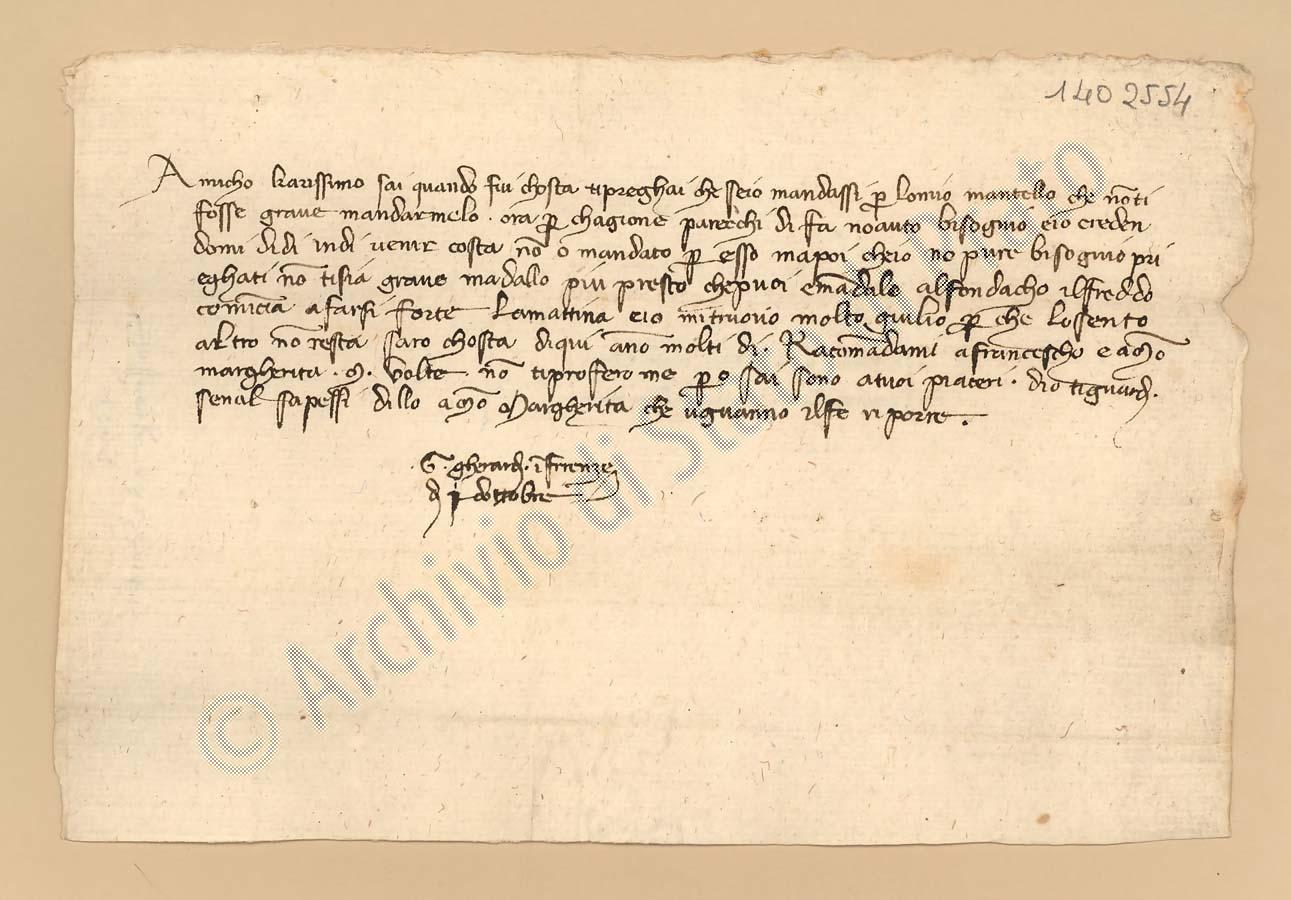 140 2554
Amicho karissimo sai quando fui chosta ti preghai che se io mandassi p lo mio mantello che nō ti
fosse grave mandarmelo · ora p chagione parechi di fa no auto bisognio e io creden
domi di di in di venir costa nō o mandato p esso ma poi che io no pure bisognio pri
eghati nō ti sia grave mādallo piu presto che puoi e mādalo al fondacho il freddo
comīcia a farsi forte la mattina e io mi truovo molto p che lo sento
altro nō resta saro chosta di qui a nō molti di · Racomādami a francescho e a mō
margherita · m · volte · nō ti profero me p o sai sono a tuoi piaceri · dio ti guardi ·
se nal sapessi dillo a mō Margherita che uguanno il fe
· G · gherardi · ī firenze
di j dottobre
© Archivio di Stato di Prato